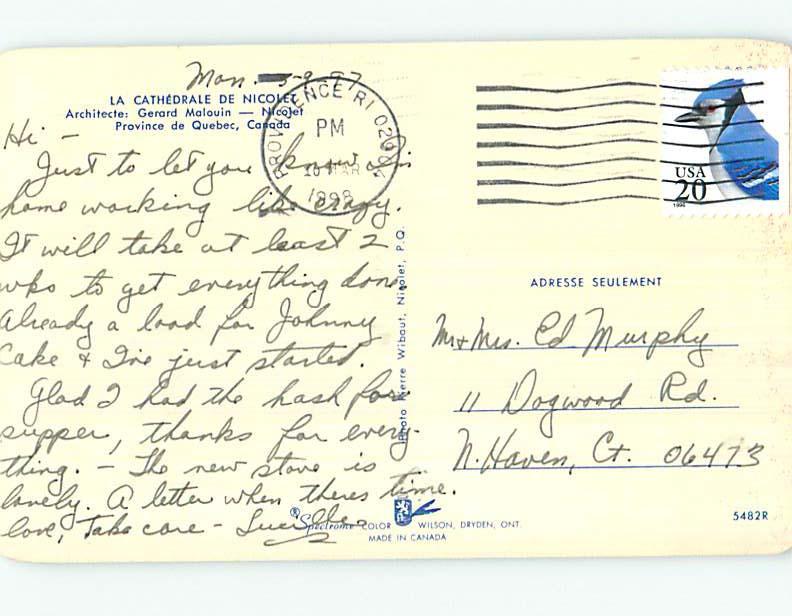 Mon. 3-9-97
LA CATHÉDRALE DE NICOLET
Architecte: Gerard Malouin — Nicolet
Province de Quebec, Canada
PROVIDENCE RI
PM
10 MAR
1998
USA
20
1996
Hi -
Just to let you know I'm
home working like crazy.
It will take at least 2
wks to get everything done.
Already a load for Johnny
Cake & I've just started.
Glad I had the hash for
supper, thanks for every-
thing. - The new stove is
lovely. A letter when theres time.
love, Take care - Lucille
Photo Pierre Wibaut, Nicolet, P.Q.
ADRESSE SEULEMENT
Mr & Mrs. Ed Murphy
11 Dogwood Rd.
N. Haven, Ct. 06473
®Spectrome COLOR WILSON, DRYDEN, ONT.
MADE IN CANADA
5482R